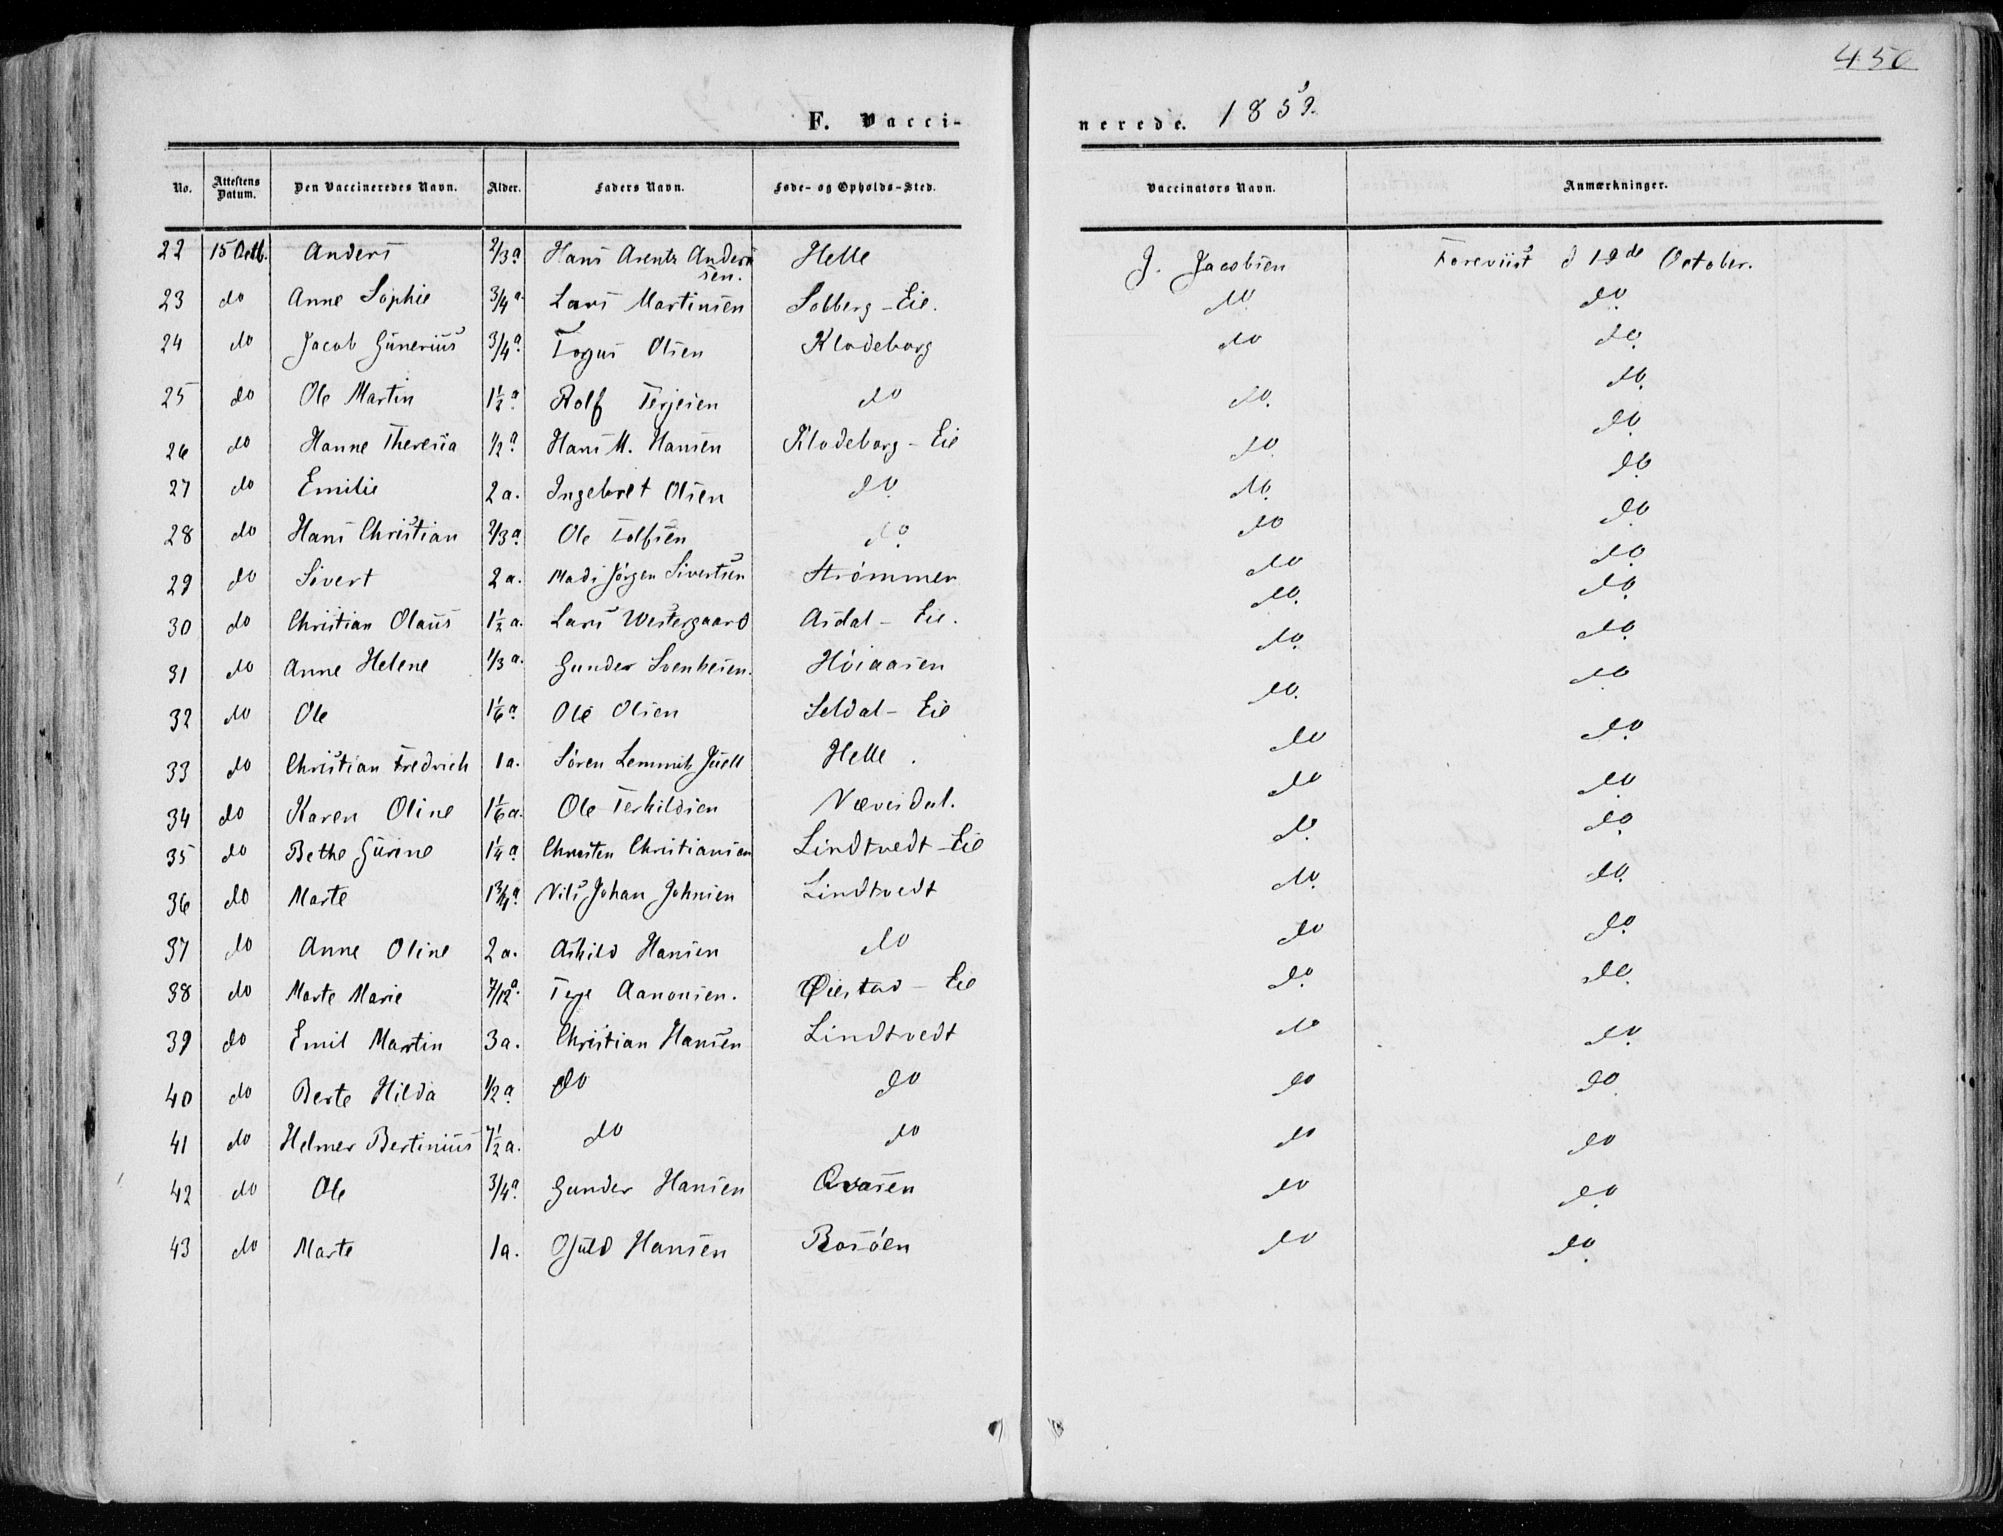 450
F. Vacci-
nerede. 1859.
No. Attestens Datum. Den Vaccineredes Navn. Alder. Faders Navn. Føde- og Opholds-Sted. Vaccinators Navn. Anmærkninger.
22 15 Octb. Anders 2/3 a. Hans Arentz Anders sen. Helle J. Jacobsen Foreviist d 19de October.
23 do Anne Sophie 3/4 a. Lars Martinsen Solberg-Eie. do do.
24 do Jacob Gunerius 3/4 a. Torjus Olsen Klodeborg do do.
25 do Ole Martin 1½ a. Rolf Terjesen do do. do.
26 do Hanne Theresia 1/2 a. Hans M. Hansen Klodeborg-Eie do. do.
27 do Emilie 2 a. Ingebret Olsen do. do. do.
28 do Hans Christian 2/3 a. Ole Tolfsen do. do do.
29 do Sivert 2 a. Mads Jørgen Sivertsen Strømmen do do.
30 do Christian Olaus 1½ a. Lars Westergaard Asdal-Eie. do. do.
31 do Anne Helene 1/3 a. Gunder Svenkesen. Høiaasen do. do.
32 do Ole 1 1/6 a. Ole Olsen Seldal-Eie do. do.
33 do Christian Fredrich 1 a. Søren Lemmich Juell Helle. do do.
34 do Karen Oline 1 1/6 a. Ole Terkildsen Nævesdal. do do.
35 do Bethe Gurine 1¼ a. Christen Christiansen Lindtvedt-Eie do. do.
36 do Marte 1¾ a. Nils Johan Johnsen Lindtvedt do. do.
37 do Anne Oline 2 a. Askild Hansen do do do.
38 do Marte Marie 7/12 a. Terje Aanonsen. Øiestad-Eie do. do.
39 do Emil Martin 3 a. Christian Hansen Lindtvedt do do.
40 do Berte Hilda 1/2 a. do do do do.
41 do Helmer Bertinius 7½ a. do do do do
42 do Ole 3/4 a. Gunder Hansen Qvasen do do.
43 do Marte 1 a. Ojuld Hansen Bosøen do do.